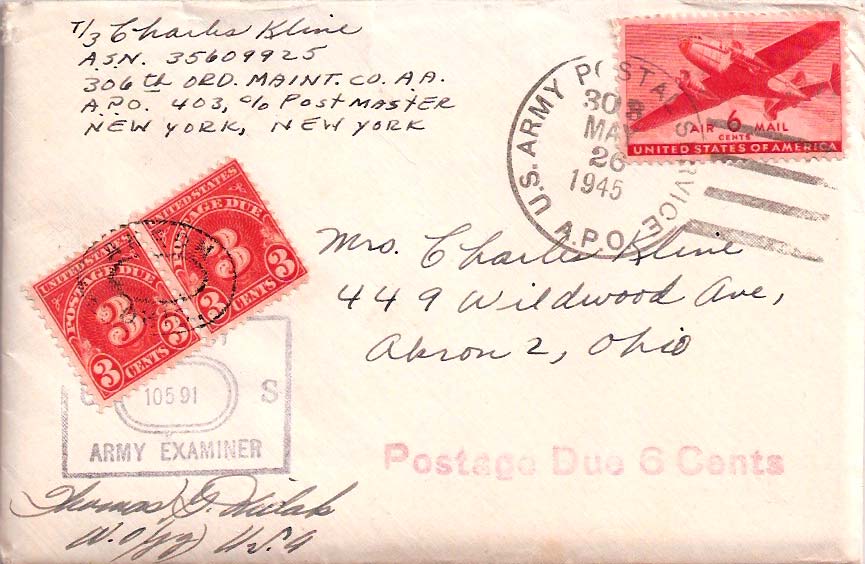 T/3 Charles Kline
A.S.N. 35609925
306th ORD. MAINT. CO. A.A.
A.P.O. 403, c/o POSTMASTER
NEW YORK, NEW YORK
U.S. ARMY POSTAL SERVICE
A.P.O.
308
MAY
26
1945
AIR 6 MAIL
CENTS
UNITED STATES OF AMERICA
UNITED STATES
POSTAGE DUE
3
3 CENTS 3
UNITED STATES
POSTAGE DUE
3
3 CENTS 3
Mrs. Charles Kline
449 Wildwood Ave,
Akron 2, Ohio
10591
S
ARMY EXAMINER
Postage Due 6 Cents
Thomas G.
W.O. (jg) U.S.A